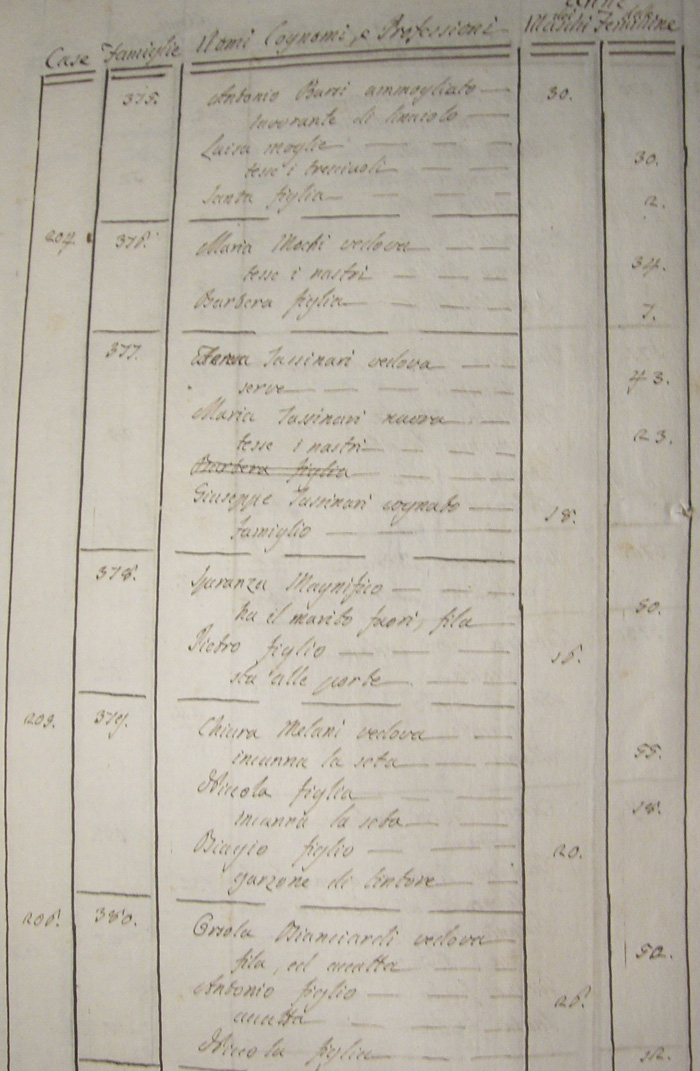 Case Famiglie Nomi Cognomi, e Professioni Anni Maschi Femmine
375. Antonio Burri ammogliato 30.
lavorante di
Luisa moglie 30.
tesse i
Santa figlia 2.
204 376. Maria Mochi vedova 34.
tesse i nastri
Barbera figlia 7.
377. Teresa Tassinari vedova 43.
serve
Maria Tassinari nuora 23.
tesse i nastri
Barbera figlia
Giuseppe Tassinari cognato 18.
famiglio
378. Speranza Magnifico 50.
ha il marito fuori, fila
Pietro figlio 16.
sta alle porte
205. 379. Chiara Melani vedova 55.
incanna la seta
Niccola figlia 18.
incanna la seta
Biagio figlio 20.
garzone di tintore
206. 380. Orsola Bianciardi vedova 50.
fila, ed accatta
Antonio figlio 26.
accatta
Niccola figlia